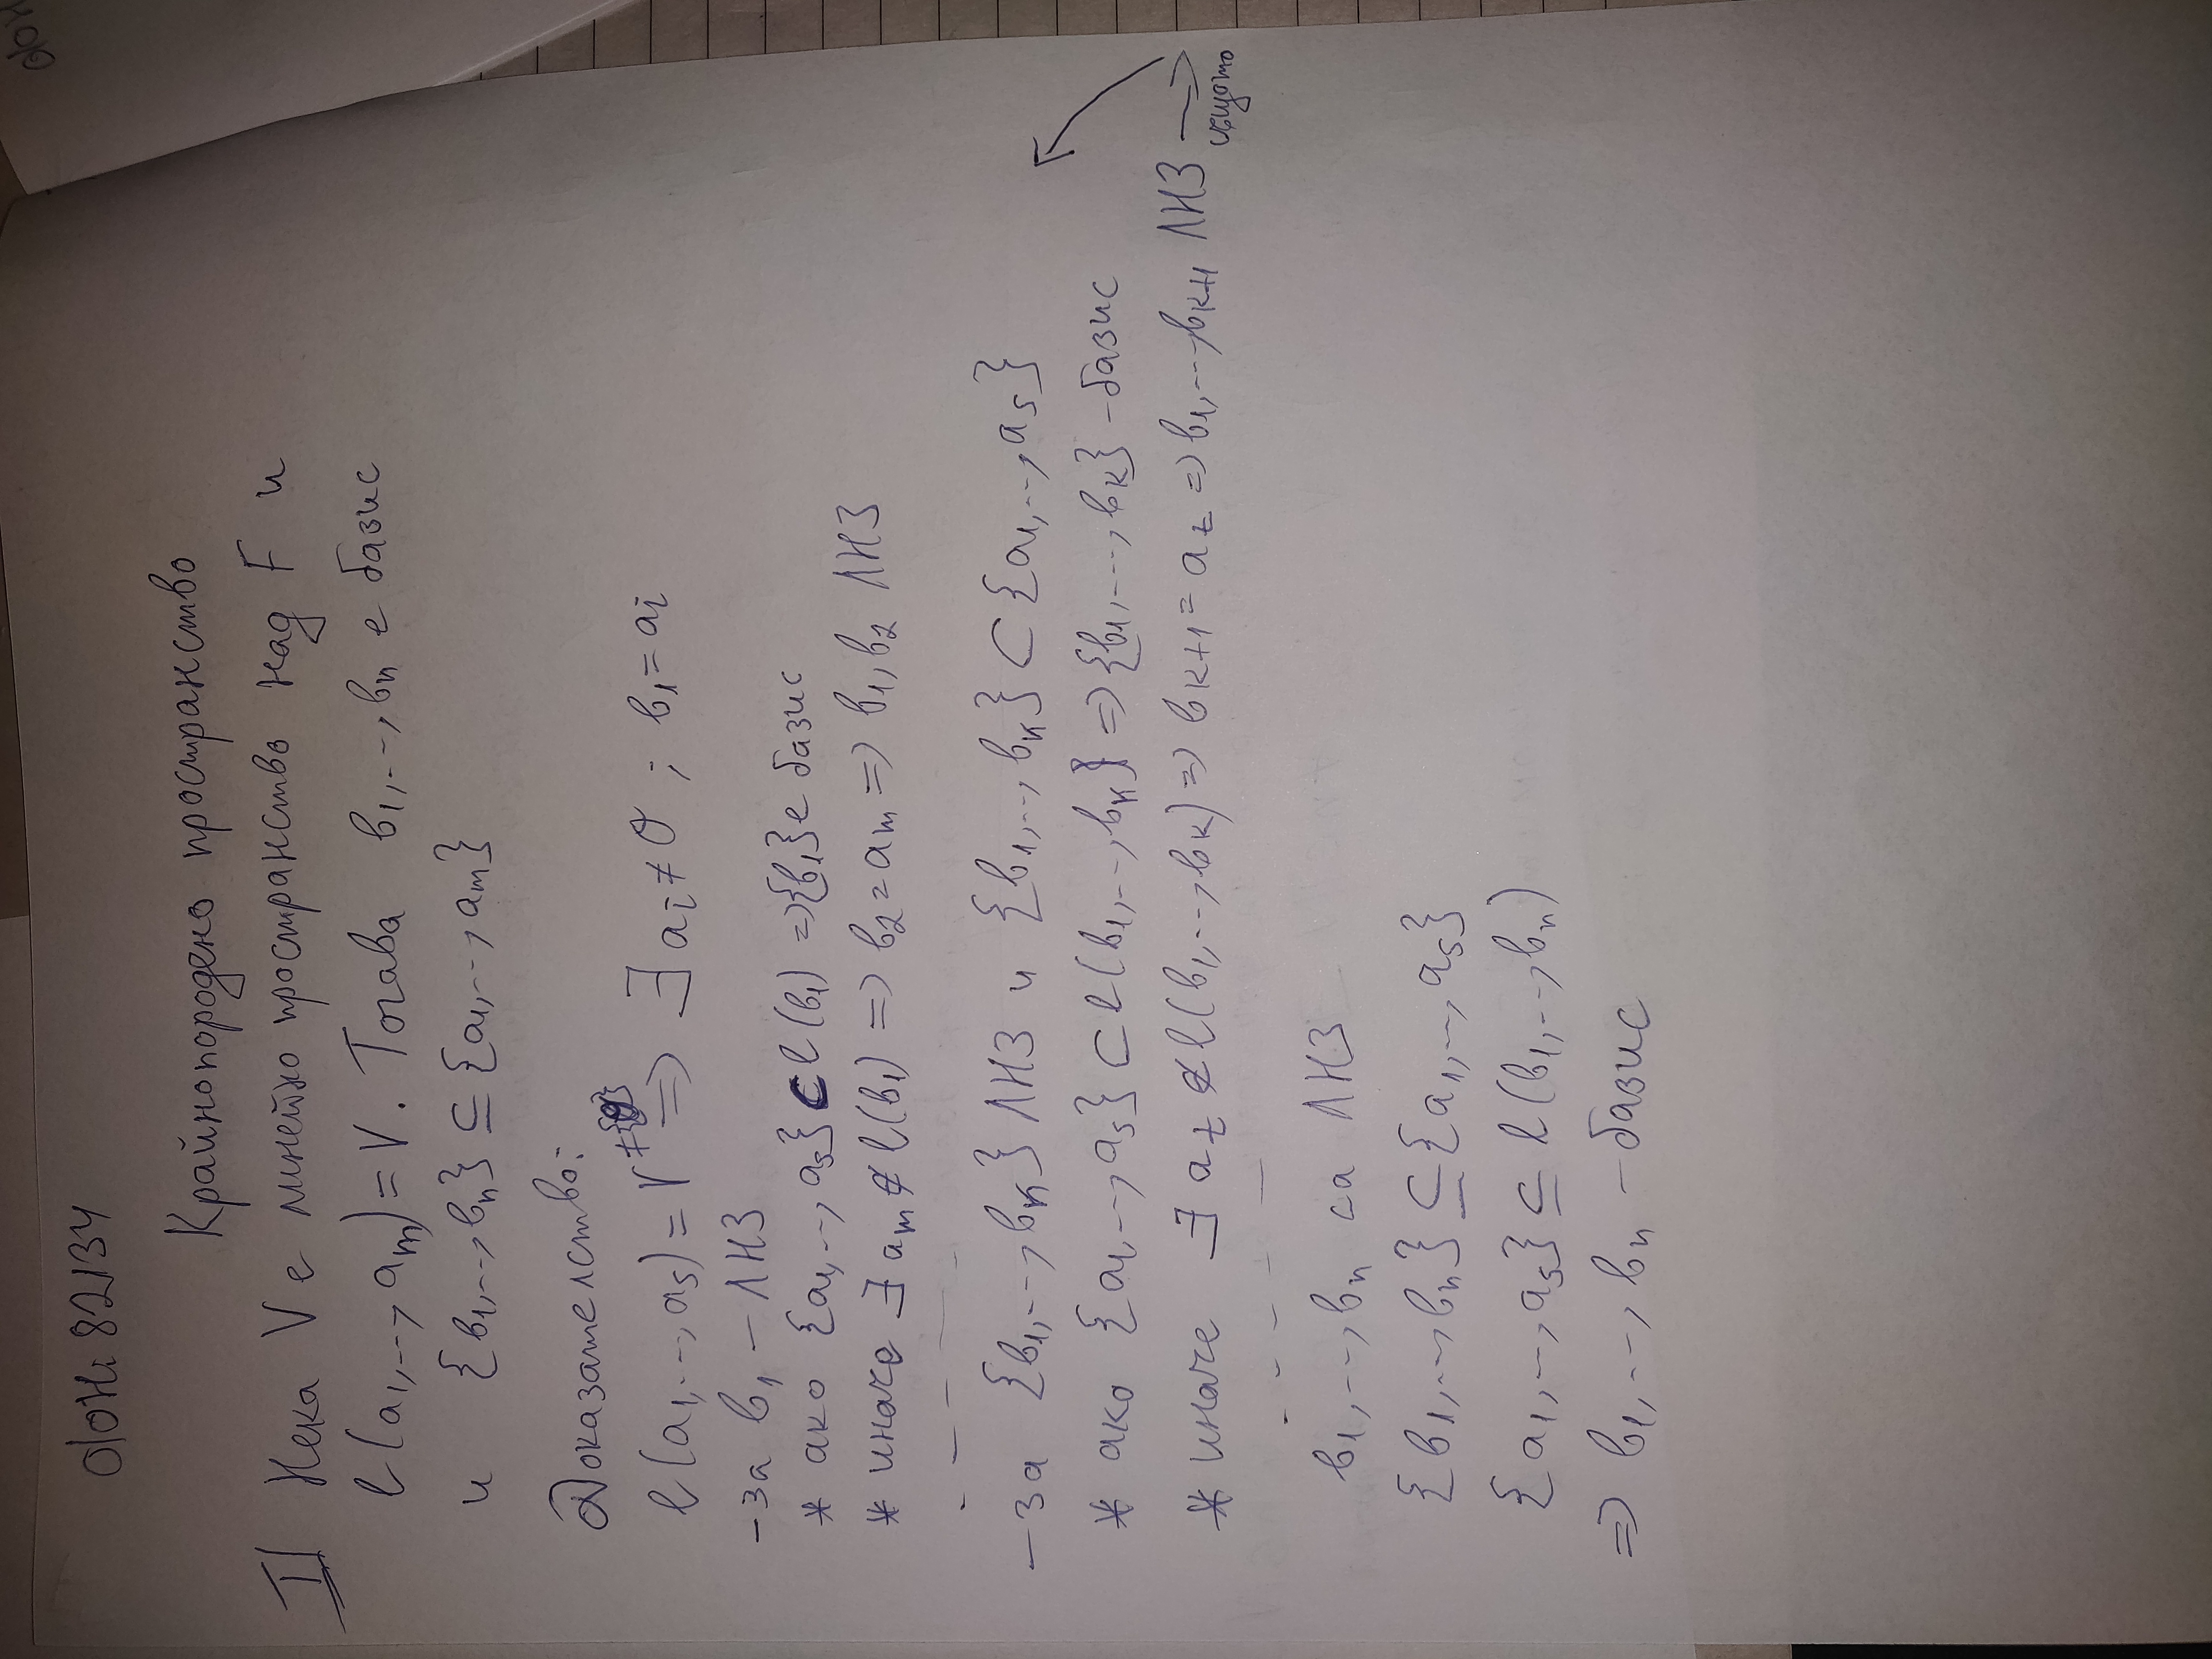 ФН: 82134
Крайнопородено пространство
I Нека V е линейно пространство над F и
l(a1,..., am) = V. Тогава b1,..., bn е базис
и {b1,..., bn} ⊆ {a1,..., am}
Доказателство:
l(a1,..., as) = V ≠{θ} => ∃ ai ≠ θ ; b1 = ai
- за b1 - ЛНЗ
* ако {a1,..., as} ⊂ l(b1) => {b1} е базис
* иначе ∃ am ∉ l(b1) => b2 = am => b1, b2 ЛНЗ
- за {b1,..., bk} ЛНЗ и {b1,..., bk} ⊂ {a1,..., as}
* ако {a1,..., as} ⊂ l(b1,..., bk} => {b1,..., bk} - базис
* иначе ∃ at ∉ l(b1,..., bk) => bk+1 = at => b1,..., bk+1 ЛНЗ →
b1,..., bn са ЛНЗ
{b1,..., bn} ⊆ {a1,..., as}
{a1,..., as} ⊆ l(b1,..., bn)
=> b1,..., bn - базис